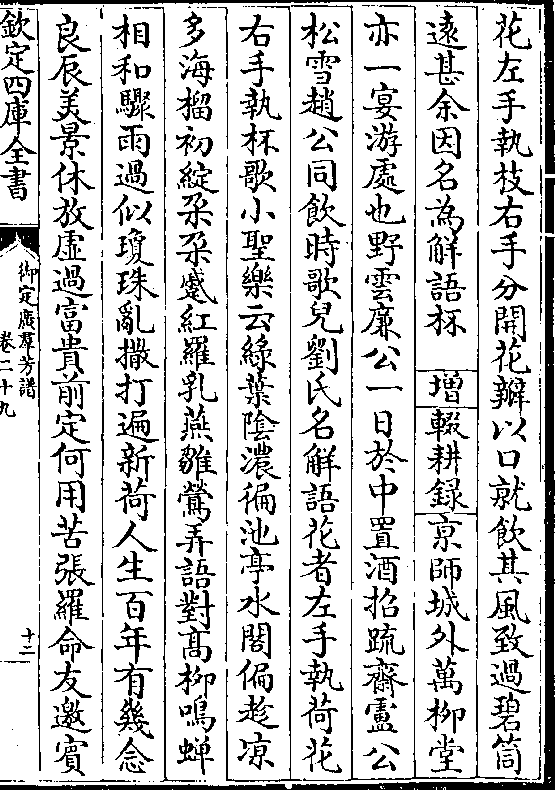 花左手執枝右手分開花瓣以口就飲其風致過碧筒
遠甚余因名為解語杯 增輟耕録京師城外萬柳堂
亦一宴游處也野雲廉公一日於中置酒招疏齋盧公
松雪趙公同飲時歌兒劉氏名解語花者左手執荷花
右手執杯歌小聖樂云綠葉陰濃徧池亭水閣偏趁凉
多海榴初綻朶朶蹙紅羅乳燕雛鶯弄語對髙柳鳴蟬
相和驟雨過似瓊珠亂撒打遍新荷人生百年有幾念
良辰美景休放虛過富貴前定何用苦張羅命友邀賓
欽定四庫全書
御定廣羣芳譜
卷二十九
十二